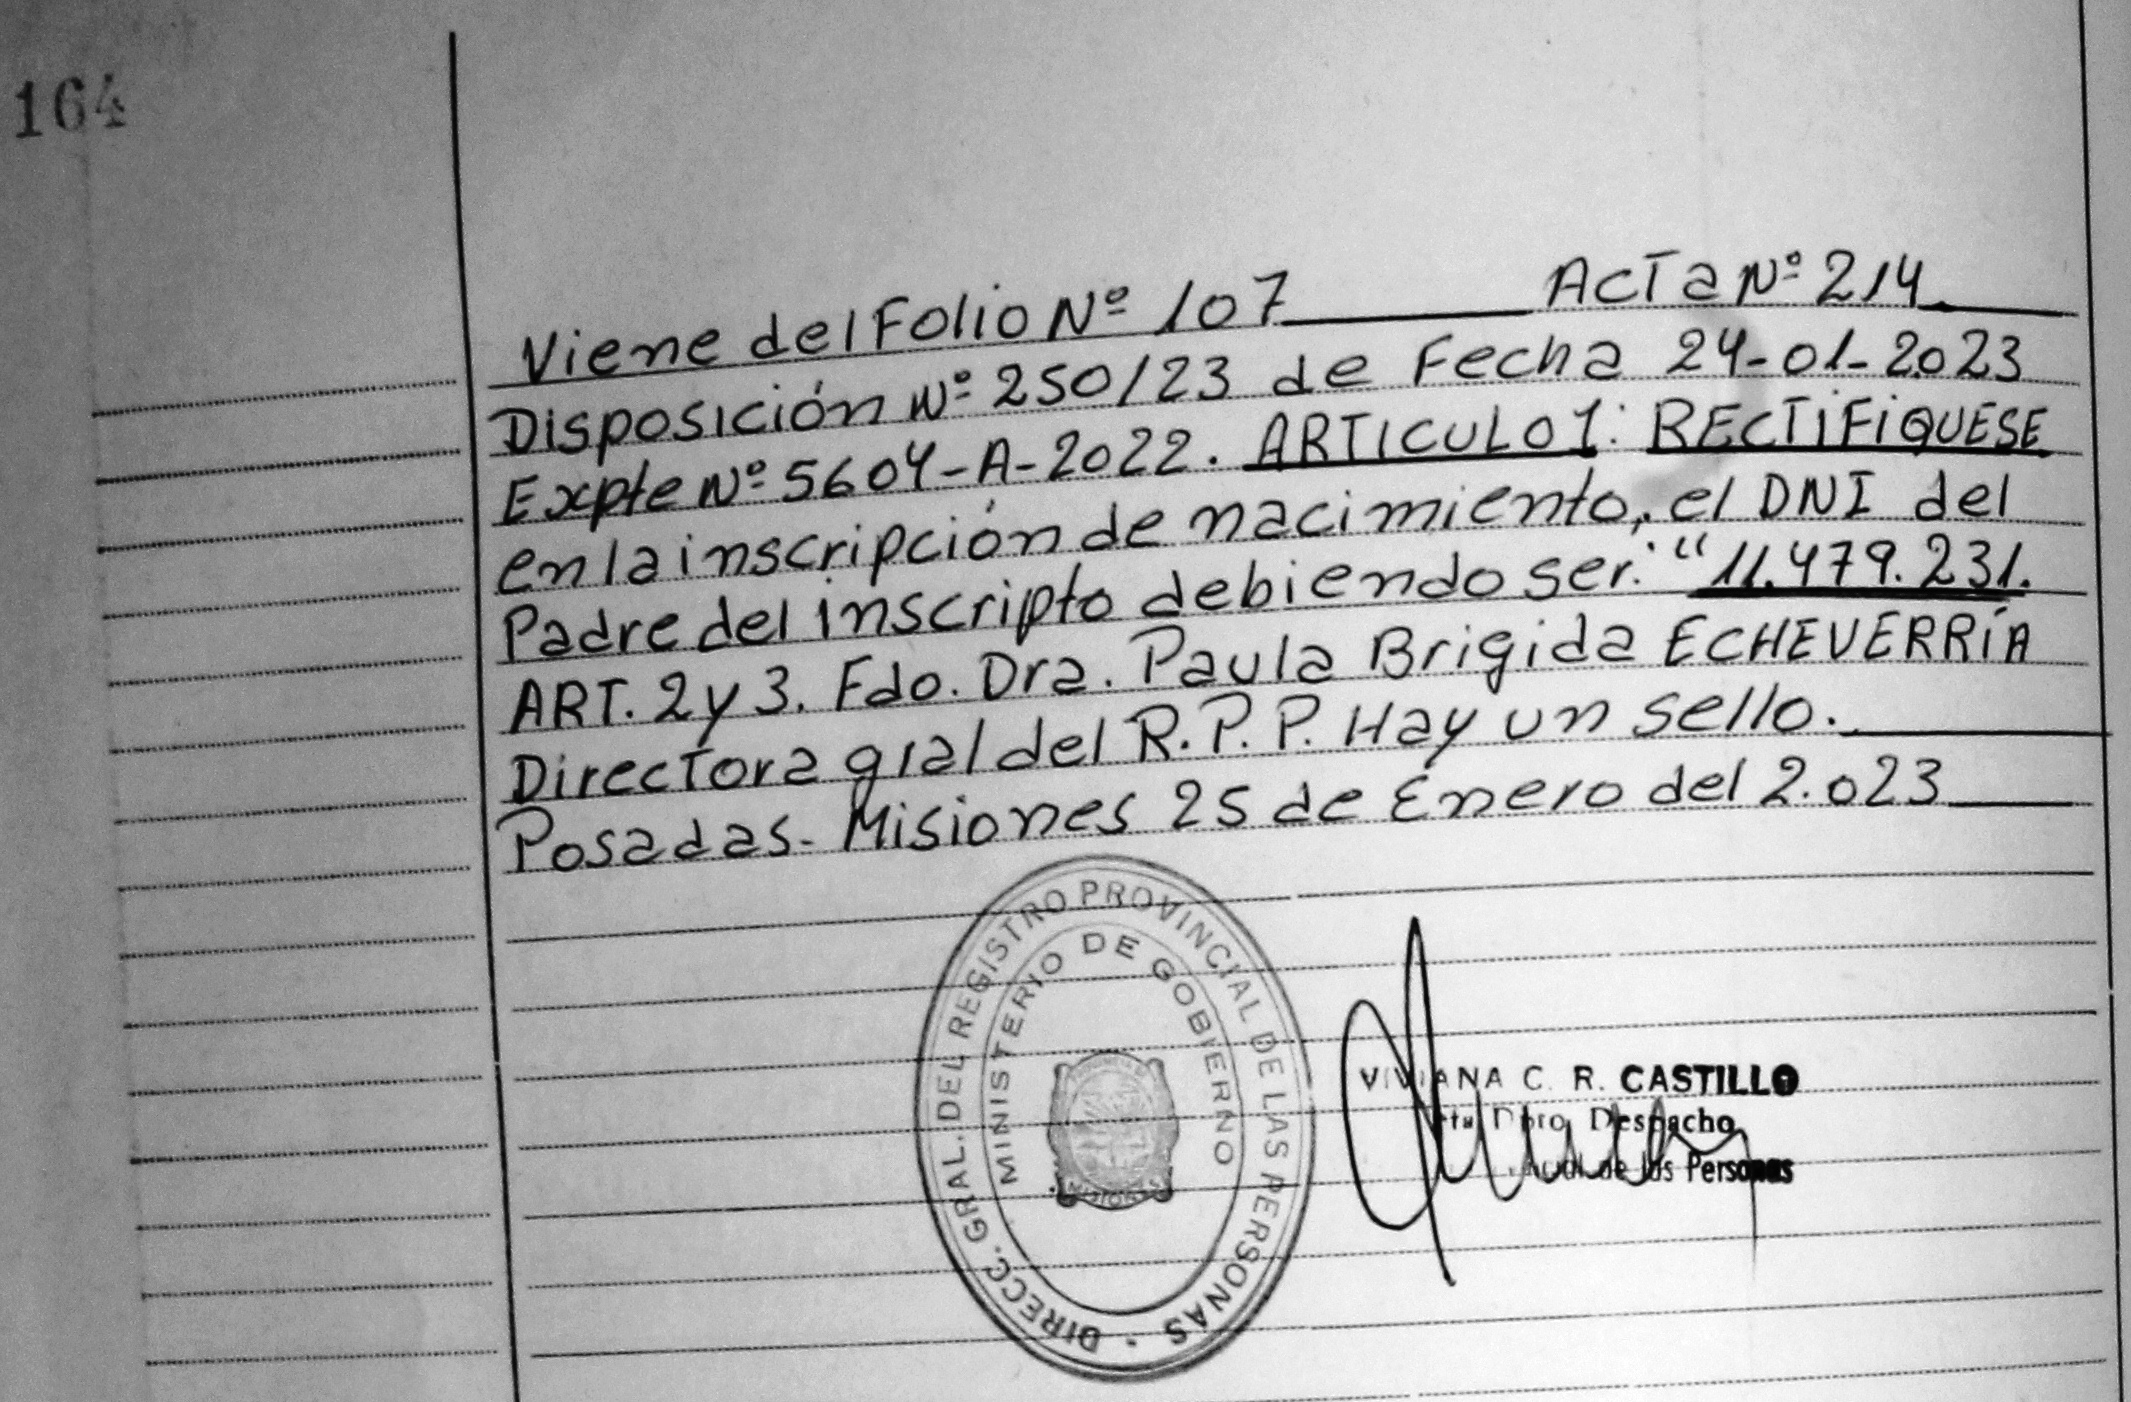 164
Viene del Folio Nº 107 Acta Nº 214.
Disposición Nº 250/23 de Fecha 24-01-2.023
Expte Nº 5604-A-2022. ARTICULO 1: RECTIFIQUESE
en la inscripción de nacimiento, el DNI del
Padre del inscripto debiendo ser: "11.479.231.
ART. 2 y 3. Fdo. Dra. Paula Brigida ECHEVERRÍA
Directora gral del R.P.P. Hay un sello.
Posadas- Misiones 25 de Enero del 2.023
DIRECC. GRAL. DEL REGISTRO PROVINCIAL DE LAS PERSONAS
MINISTERIO DE GOBIERNO
MISIONES
VIVIANA C. R. CASTILLO
Dpto Despacho
de las Personas